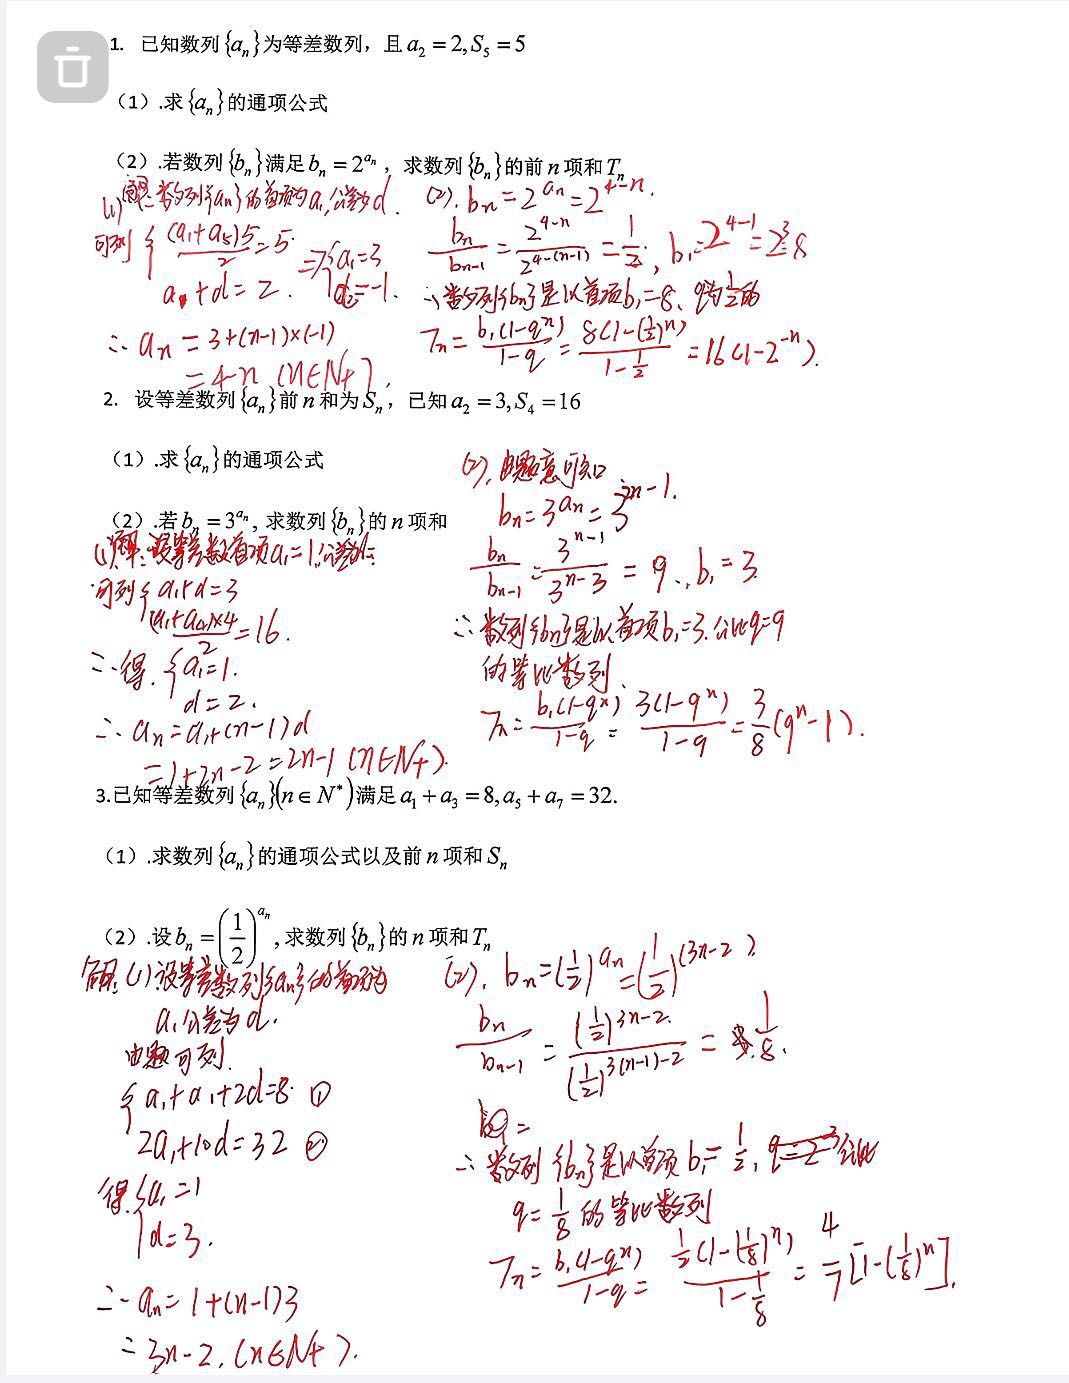 1. 已知数列{aₙ}为等差数列，且a₂=2,S₅=5
（1）.求{aₙ}的通项公式
（2）.若数列{bₙ}满足bₙ=2^(aₙ)，求数列{bₙ}的前n项和Tₙ
(1) 解:设数列{aₙ}的首项为a₁,公差为d.
可列{ (a₁+a₅)5/2=5
a₁+d=2.
⇒{a₁=3
d=-1.
∴aₙ=3+(n-1)×(-1)
=4-n (n∈N+).
(2).bₙ=2^(aₙ)=2^(4-n).
bₙ/bₙ₋₁=2^(4-n)/2^(4-(n-1))=1/2, b₁=2^(4-1)=2³=8
∴数列{bₙ}是以首项b₁=8、q为1/2的
Tₙ=b₁(1-qⁿ)/(1-q)=8(1-(1/2)ⁿ)/(1-1/2)=16(1-2^(-n)).
2. 设等差数列{aₙ}前n和为Sₙ，已知a₂=3,S₄=16
（1）.求{aₙ}的通项公式
（2）.若bₙ=3^(aₙ),求数列{bₙ}的n项和
(1)解:设等差数首项a₁=1,公差d=
可列{a₁+d=3
(a₁+a₄)×4/2=16.
∴得.{a₁=1.
d=2.
∴aₙ=a₁+(n-1)d
=1+2n-2=2n-1 (n∈N+).
(2),由题意可知
bₙ=3^(aₙ)=3^(2n-1).
bₙ/bₙ₋₁=3^(n-1)/3^(n-3)=9., b₁=3.
∴数列{bₙ}是以首项b₁=3.公比q=9
的等比数列.
Tₙ=b₁(1-qⁿ)/(1-q)=3(1-9ⁿ)/(1-9)=3/8(9ⁿ-1).
3.已知等差数列{aₙ}(n∈N*)满足a₁+a₃=8,a₅+a₇=32.
（1）.求数列{aₙ}的通项公式以及前n项和Sₙ
（2）.设bₙ=(1/2)^(aₙ),求数列{bₙ}的n项和Tₙ
解:(1)设等差数列{aₙ}的首项为
a₁公差为d.
由题可列.
{a₁+a₁+2d=8 ①
2a₁+10d=32 ②
得.{a₁=1
d=3.
∴aₙ=1+(n-1)3
=3n-2.(n∈N+).
(2).bₙ=(1/2)^(aₙ)=(1/2)^(3n-2).
bₙ/bₙ₋₁=(1/2)^(3n-2)/(1/2)^(3(n-1)-2)=1/8.
∴数列{bₙ}是以首项b₁=1/2,公比
q=1/8的等比数列
Tₙ=b₁(1-qⁿ)/(1-q)=1/2(1-(1/8)ⁿ)/(1-1/8)=4/7[1-(1/8)ⁿ].